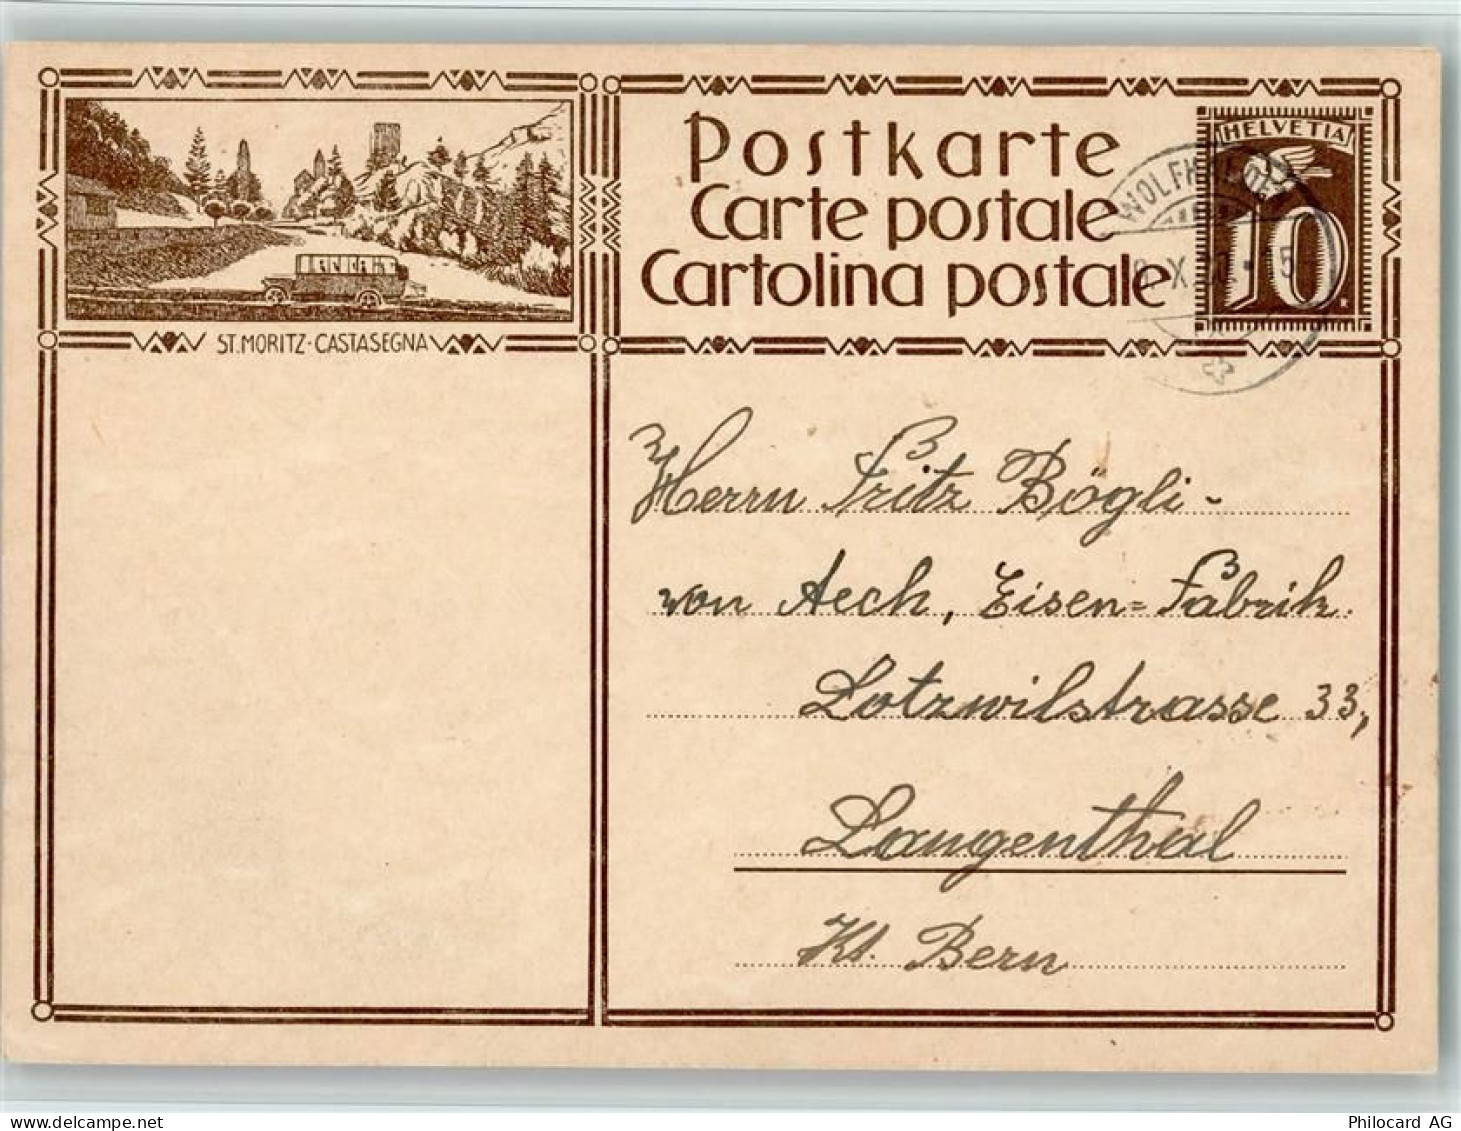 ST. MORITZ-CASTASEGNA
Postkarte
Carte postale
Cartolina postale
HELVETIA
10
X
Herrn Fritz Bögli-
von Aech, Eisen=Fabrik.
Lotzwilstrasse 33,
Langenthal
Kt. Bern
delcampe.net
Philocard AG